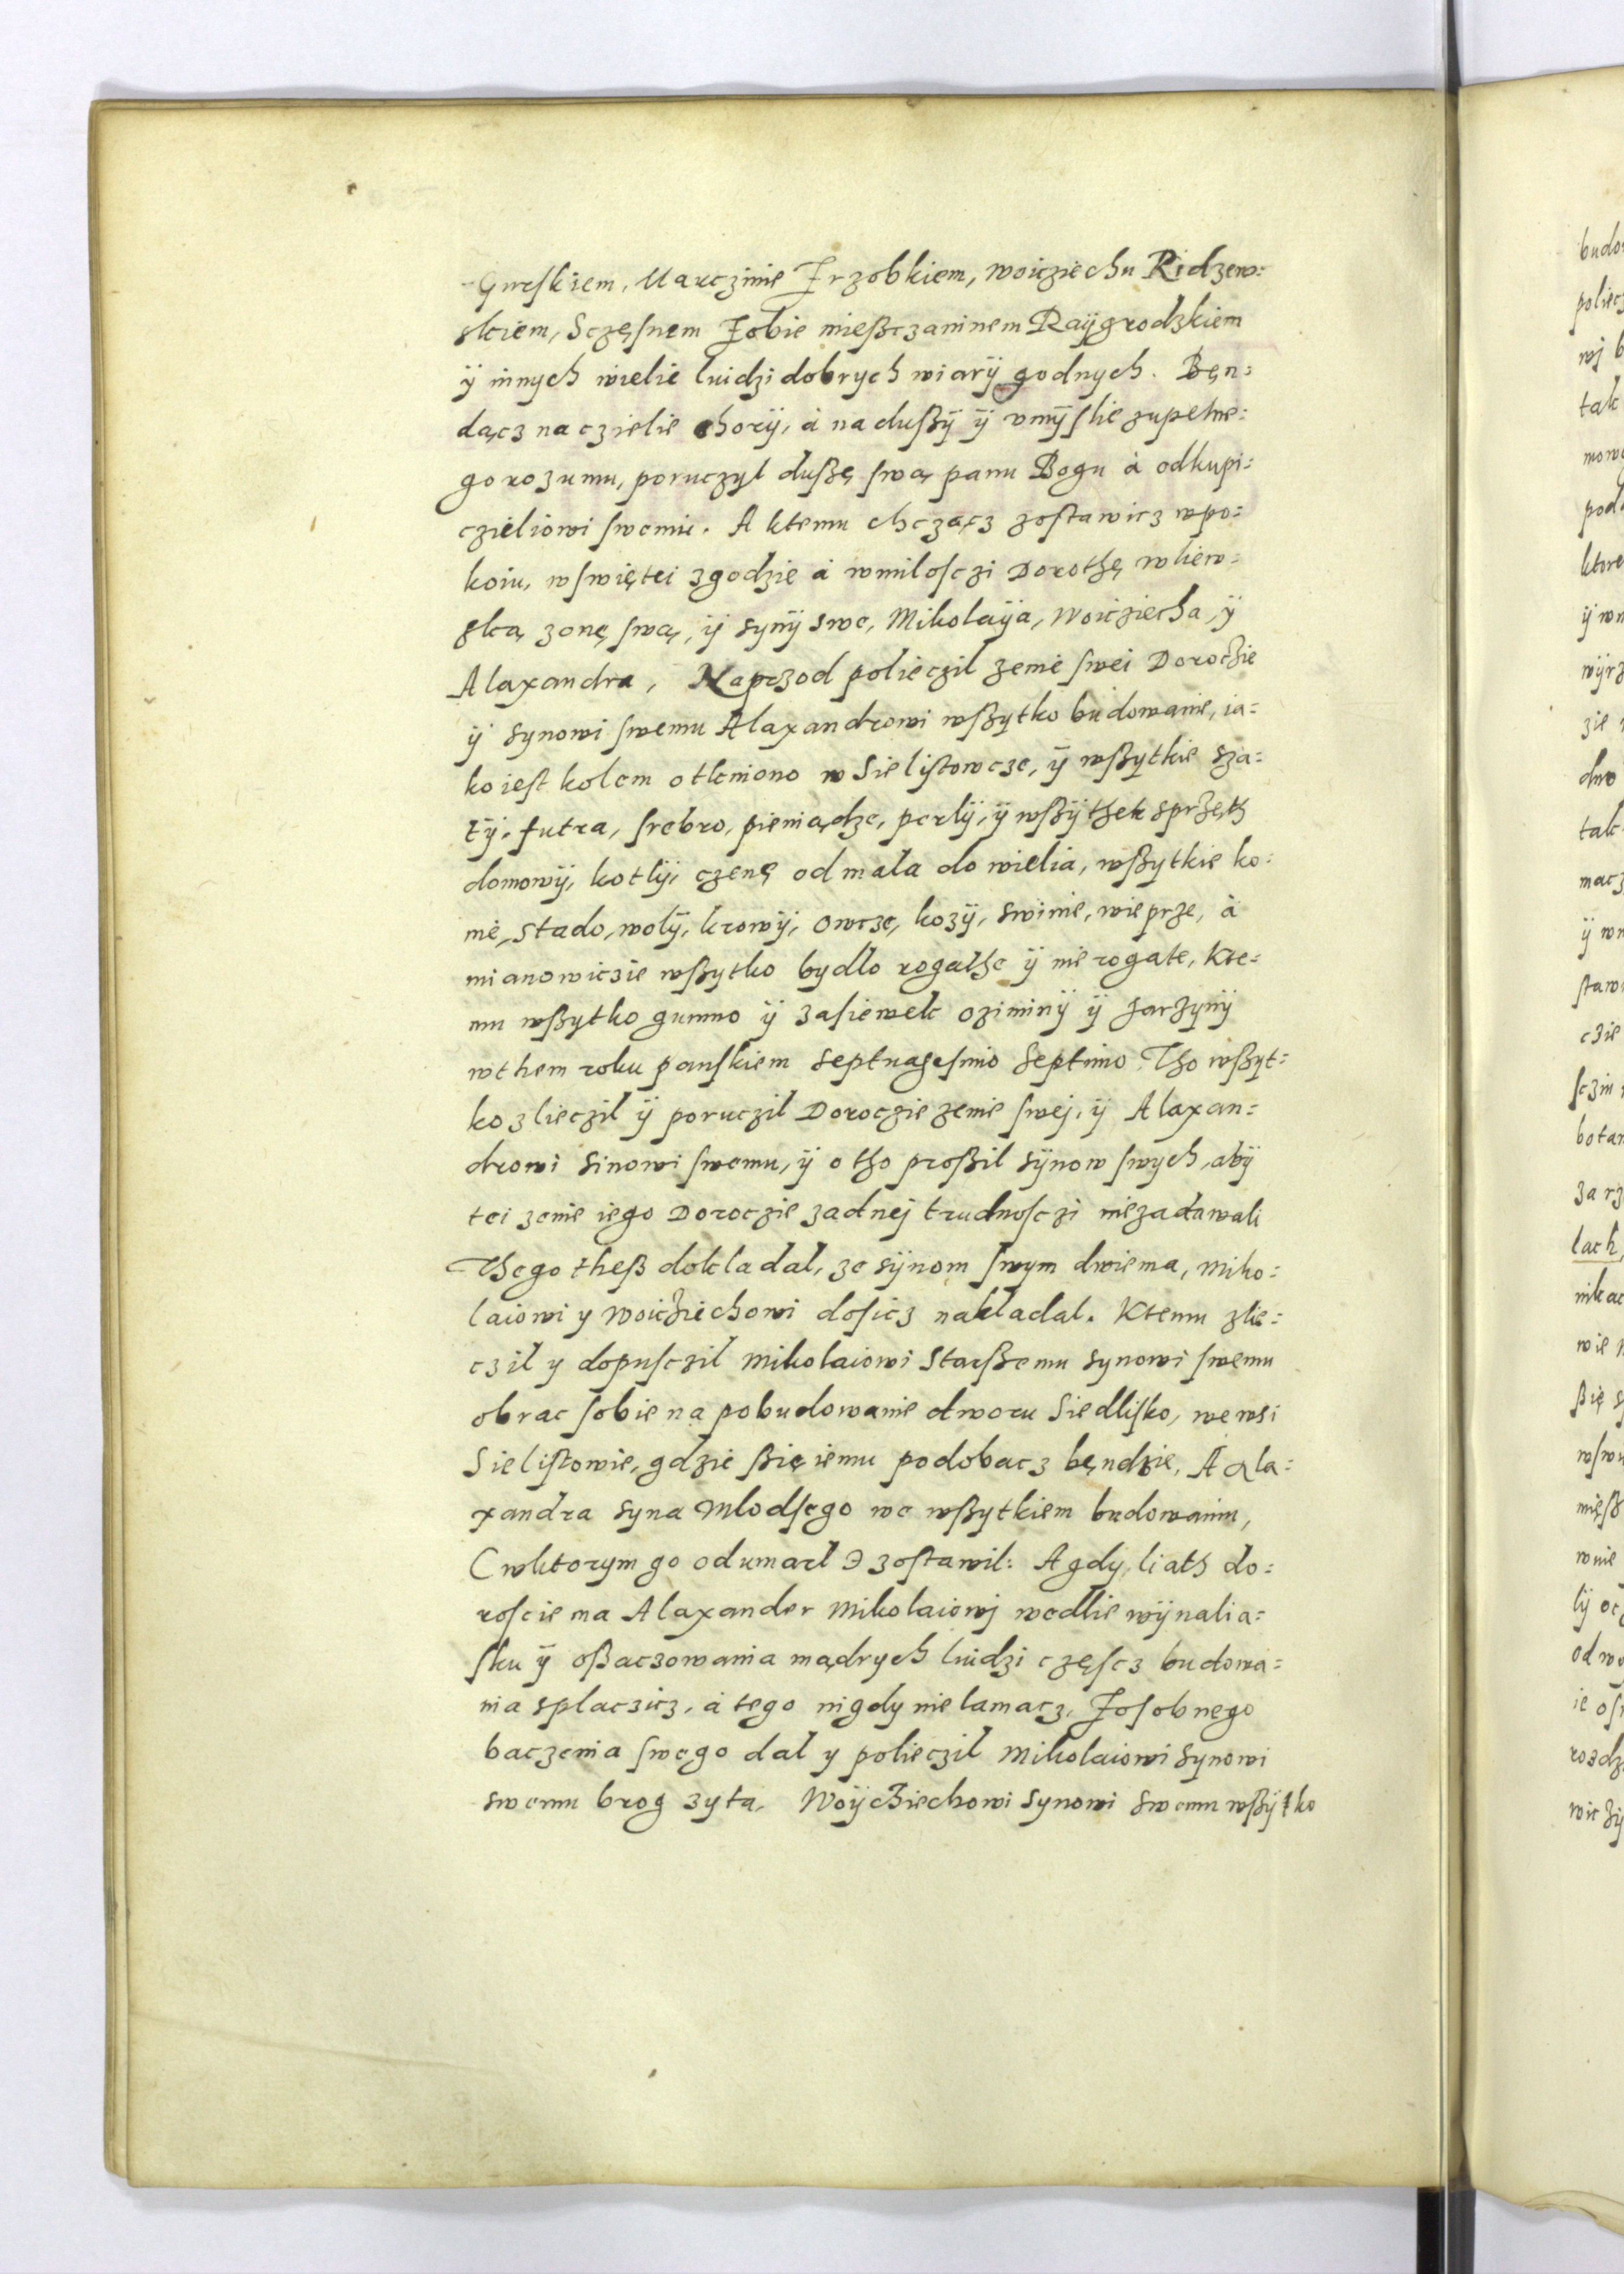 Gurskiem, Marczinie Jrzobkiem, woicziechu Ridzew:
skiem, Sczęsnem Jobie mießczaninem Raÿgrodzkiem
ÿ innych wielie luidzi dobrych wiarÿ godnych. Bęn:
dącz na czielie chorÿ, à na dußÿ ÿ vmÿslie zupelne:
go rozumu, poruczyl dußę swą panu Bogu à odkupi:
czieliowi swemu. A ktemu chcząncz zostawicz wpo:
koiu, wswiętei zgodzie à wmilosczi Dorothę
zonę swą, ÿ synÿ swe, Mikolaÿa, Woicziecha, ÿ
Alaxandra, Naprzod polieczil zenie swei Doroczie
ÿ synowi swemu Alaxandrowi wßytko budowanie, ia:
ko iest kolem otknione w Sielistowcze, ÿ wßytkie sza:
tÿ, futra, srebro, pieniądze, perlÿ, ÿ wßÿthek sprzęth
domowÿ, kotlÿ, czenę od mala do wielia, wßytkie ko:
nie, stado, wolÿ, krowÿ, owcze, kozÿ, swinie, wieprze, à
mianowiczie wßytko bydlo rogathe ÿ nie rogate, Kte:
mu wßytko gumno ÿ zasiewek oziminÿ ÿ Jarzynÿ
wthem roku panskiem Septuagesimo Septimo. Tho wßyt:
ko zlieczil ÿ poruczil Doroczie zenie swej, ÿ Alaxan:
drowi sinowi swemu, ÿ o tho proßil sÿnow swych, abÿ
tei zenie iego Doroczie zadnej trudnosczi niezadawali
Thego theß dokladal, ze sÿnom swym dwiema, Miko:
laiowi y Woicziechowi dosicz nakladal. Ktemu zlie:
czil y dopusczil Mikolaiowi Starßemu synowi swemu
obrac sobie na pobudowanie dworu Siedlisko, we wsi
Sielistowie, gdzie ßię iemu podobacz będzie, A Ala:
xandra syna Mlodsego we wßytkiem budowaniu,
(wktorym go odumarl) zostawil: A gdy liath do:
roscie ma Alaxander Mikolaiowj wedlie wÿnalia:
sku ÿ oßaczowania mądrych luidzi częscz budowa:
nia splaczicz, à tego nigdy nie lamacz, Josobnego
baczenia swego dal y polieczil Mikolaiowi Synowi
swemu brog zyta, Woÿcziechowi Synowi Swemu wßÿtko